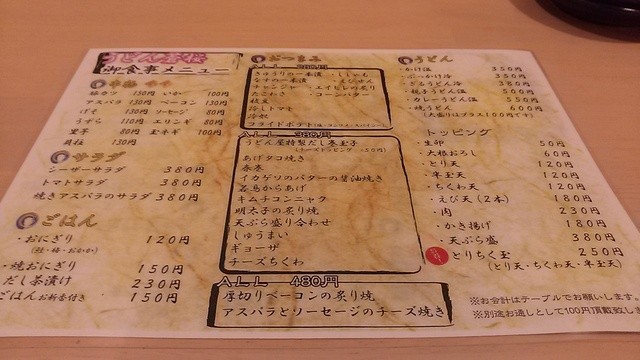 御食事メニュー
豚カツ 130円 いか 100円
アスパラ 130円 ベーコン 130円
げそ 130円 ソーセージ 80円
うずら 110円 エリンギ 80円
里子 80円 玉ネギ 100円
貝柱 130円
サラダ
シーザーサラダ 380円
トマトサラダ 380円
焼きアスパラのサラダ 380円
ごはん
・おにぎり 120円
(鮭・梅・おかか)
・焼おにぎり 150円
・だし茶漬け 230円
ごはんお新香付き 150円
おつまみ
きゅうりの一本漬
なすの一本漬 ・えびせん
チャンジャー ・エイヒレの炙り
たこわさ ・コーンバター
枝豆
冷しトマト
冷奴
フライドポテト
ALL 380円
うどん屋特製だし巻玉子
(チーズトッピング +50円)
あげタコ焼き
春巻
イカゲソのバターの醤油焼き
若鳥からあげ
キムチコンニャク
明太子の炙り焼
天ぷら盛り合わせ
しゅうまい
ギョーザ
チーズちくわ
ALL 480円
厚切りベーコンの炙り焼
アスパラとソーセージのチーズ焼き
うどん
・かけ温 350円
・ぶっかけ冷 350円
・ざるうどん冷 350円
・親子うどん温 500円
・カレーうどん温 550円
・焼うどん 600円
(大盛りはプラス100円です)
トッピング
・生卵 50円
・大根おろし 60円
・とり天 120円
・半玉天 120円
・ちくわ天 120円
・えび天(2本) 180円
・肉 230円
・かき揚げ 180円
・天ぷら盛 380円
とりちく玉 250円
(とり天・ちくわ天・半玉天)
※お会計はテーブルでお願いします。
※別途お通しとして100円頂戴致しま